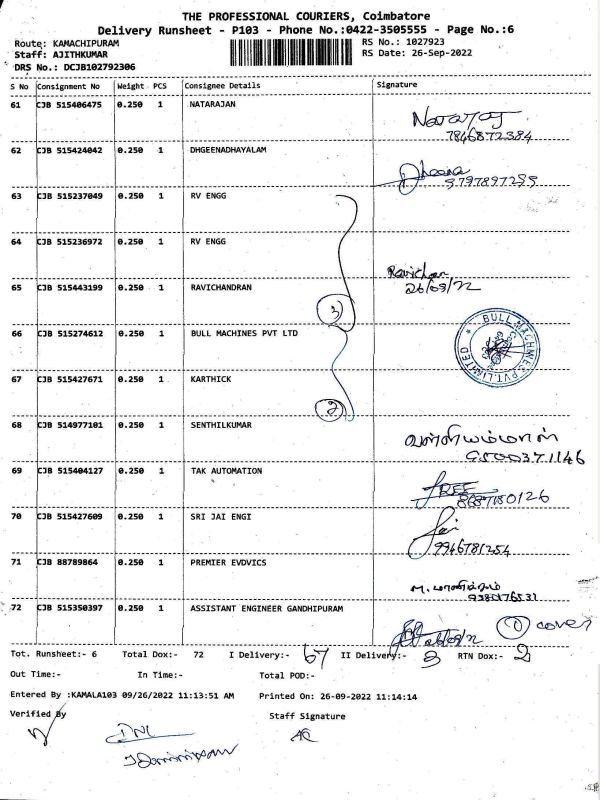 THE PROFESSIONAL COURIERS, Coimbatore
Delivery Runsheet - P103 - Phone No.:0422-3505555 - Page No.:6
Route: KAMACHIPURAM RS No.: 1027923
Staff: AJITHKUMAR RS Date: 26-Sep-2022
DRS No.: DCJB102792306
S No Consignment No Weight PCS Consignee Details Signature
61 CJB 515406475 0.250 1 NATARAJAN
7846872384
62 CJB 515424042 0.250 1 DHGEENADHAYALAM
Dheena
9797897299
63 CJB 515237049 0.250 1 RV ENGG
64 CJB 515236972 0.250 1 RV ENGG
Ravichan
65 CJB 515443199 0.250 1 RAVICHANDRAN 26/09/22
3
66 CJB 515274612 0.250 1 BULL MACHINES PVT LTD
BULL MACHINES PVT. LIMITED
67 CJB 515427671 0.250 1 KARTHICK
2
68 CJB 514977101 0.250 1 SENTHILKUMAR வள்ளியம்மாள்
9500371146
69 CJB 515404127 0.250 1 TAK AUTOMATION
70 CJB 515427609 0.250 1 SRI JAI ENGI Jai
9946781254
71 CJB 88789864 0.250 1 PREMIER EVDVICS
72 CJB 515350397 0.250 1 ASSISTANT ENGINEER GANDHIPURAM
1 cover
26/09/22
Tot. Runsheet:- 6 Total Dox:- 72 I Delivery:- 67 II Delivery:- 3 RTN Dox:- 2
Out Time:- In Time:- Total POD:-
Entered By :KAMALA103 09/26/2022 11:13:51 AM Printed On: 26-09-2022 11:14:14
Verified By Staff Signature